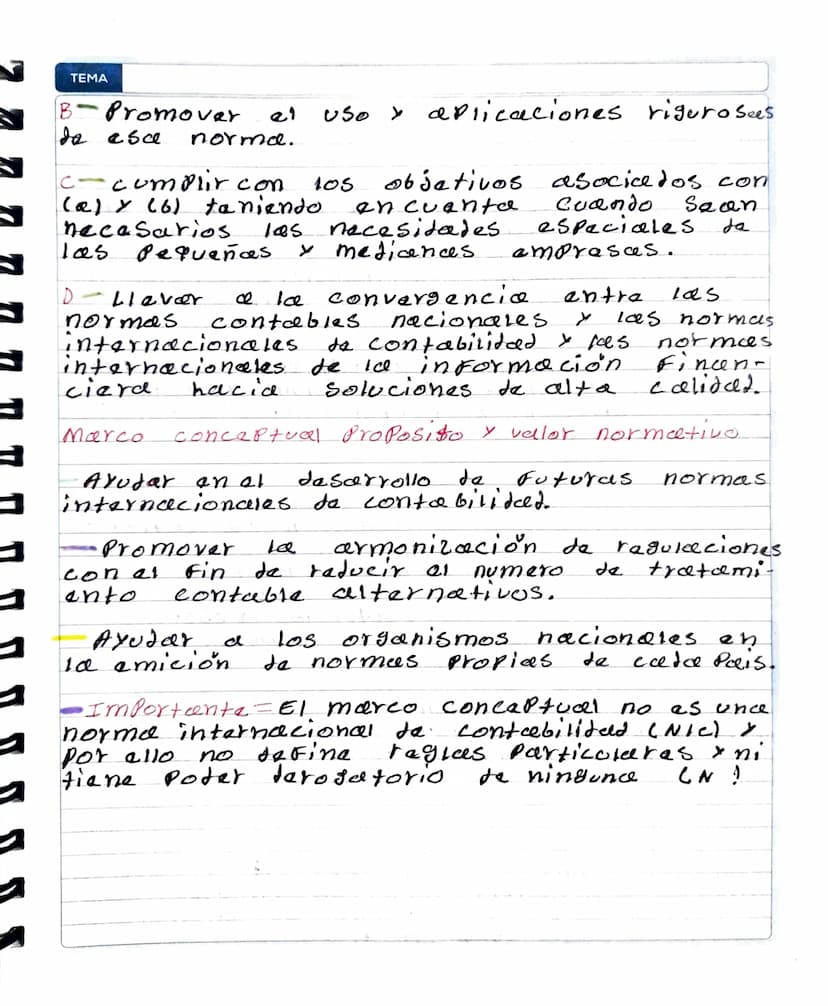 TEMA
B- Promover el uso y aplicaciones rigurosas
de esa norma.
C- cumplir con los objetivos asociados con
(a) y (b) teniendo en cuenta cuando sean
necesarios las necesidades especiales de
las pequeñas y medianas empresas.
D- Llevar a la convergencia entre las
normas contables nacionales y las normas
internacionales de contabilidad y las normas
internacionales de la información finan-
ciera hacia soluciones de alta calidad.
Marco conceptual Proposito y valor normativo
- Ayudar en el desarrollo de futuras normas
internacionales de contabilidad.
- Promover la armonización de regulaciones
con el fin de reducir el numero de tratami-
ento contable alternativos.
- Ayudar a los organismos nacionales en
la emición de normas propias de cada Pais.
- Importante = El marco conceptual no es una
norma internacional de contabilidad (NIC) y
por ello no define reglas particolares y ni
tiene poder derogatorio de ninguna (N I